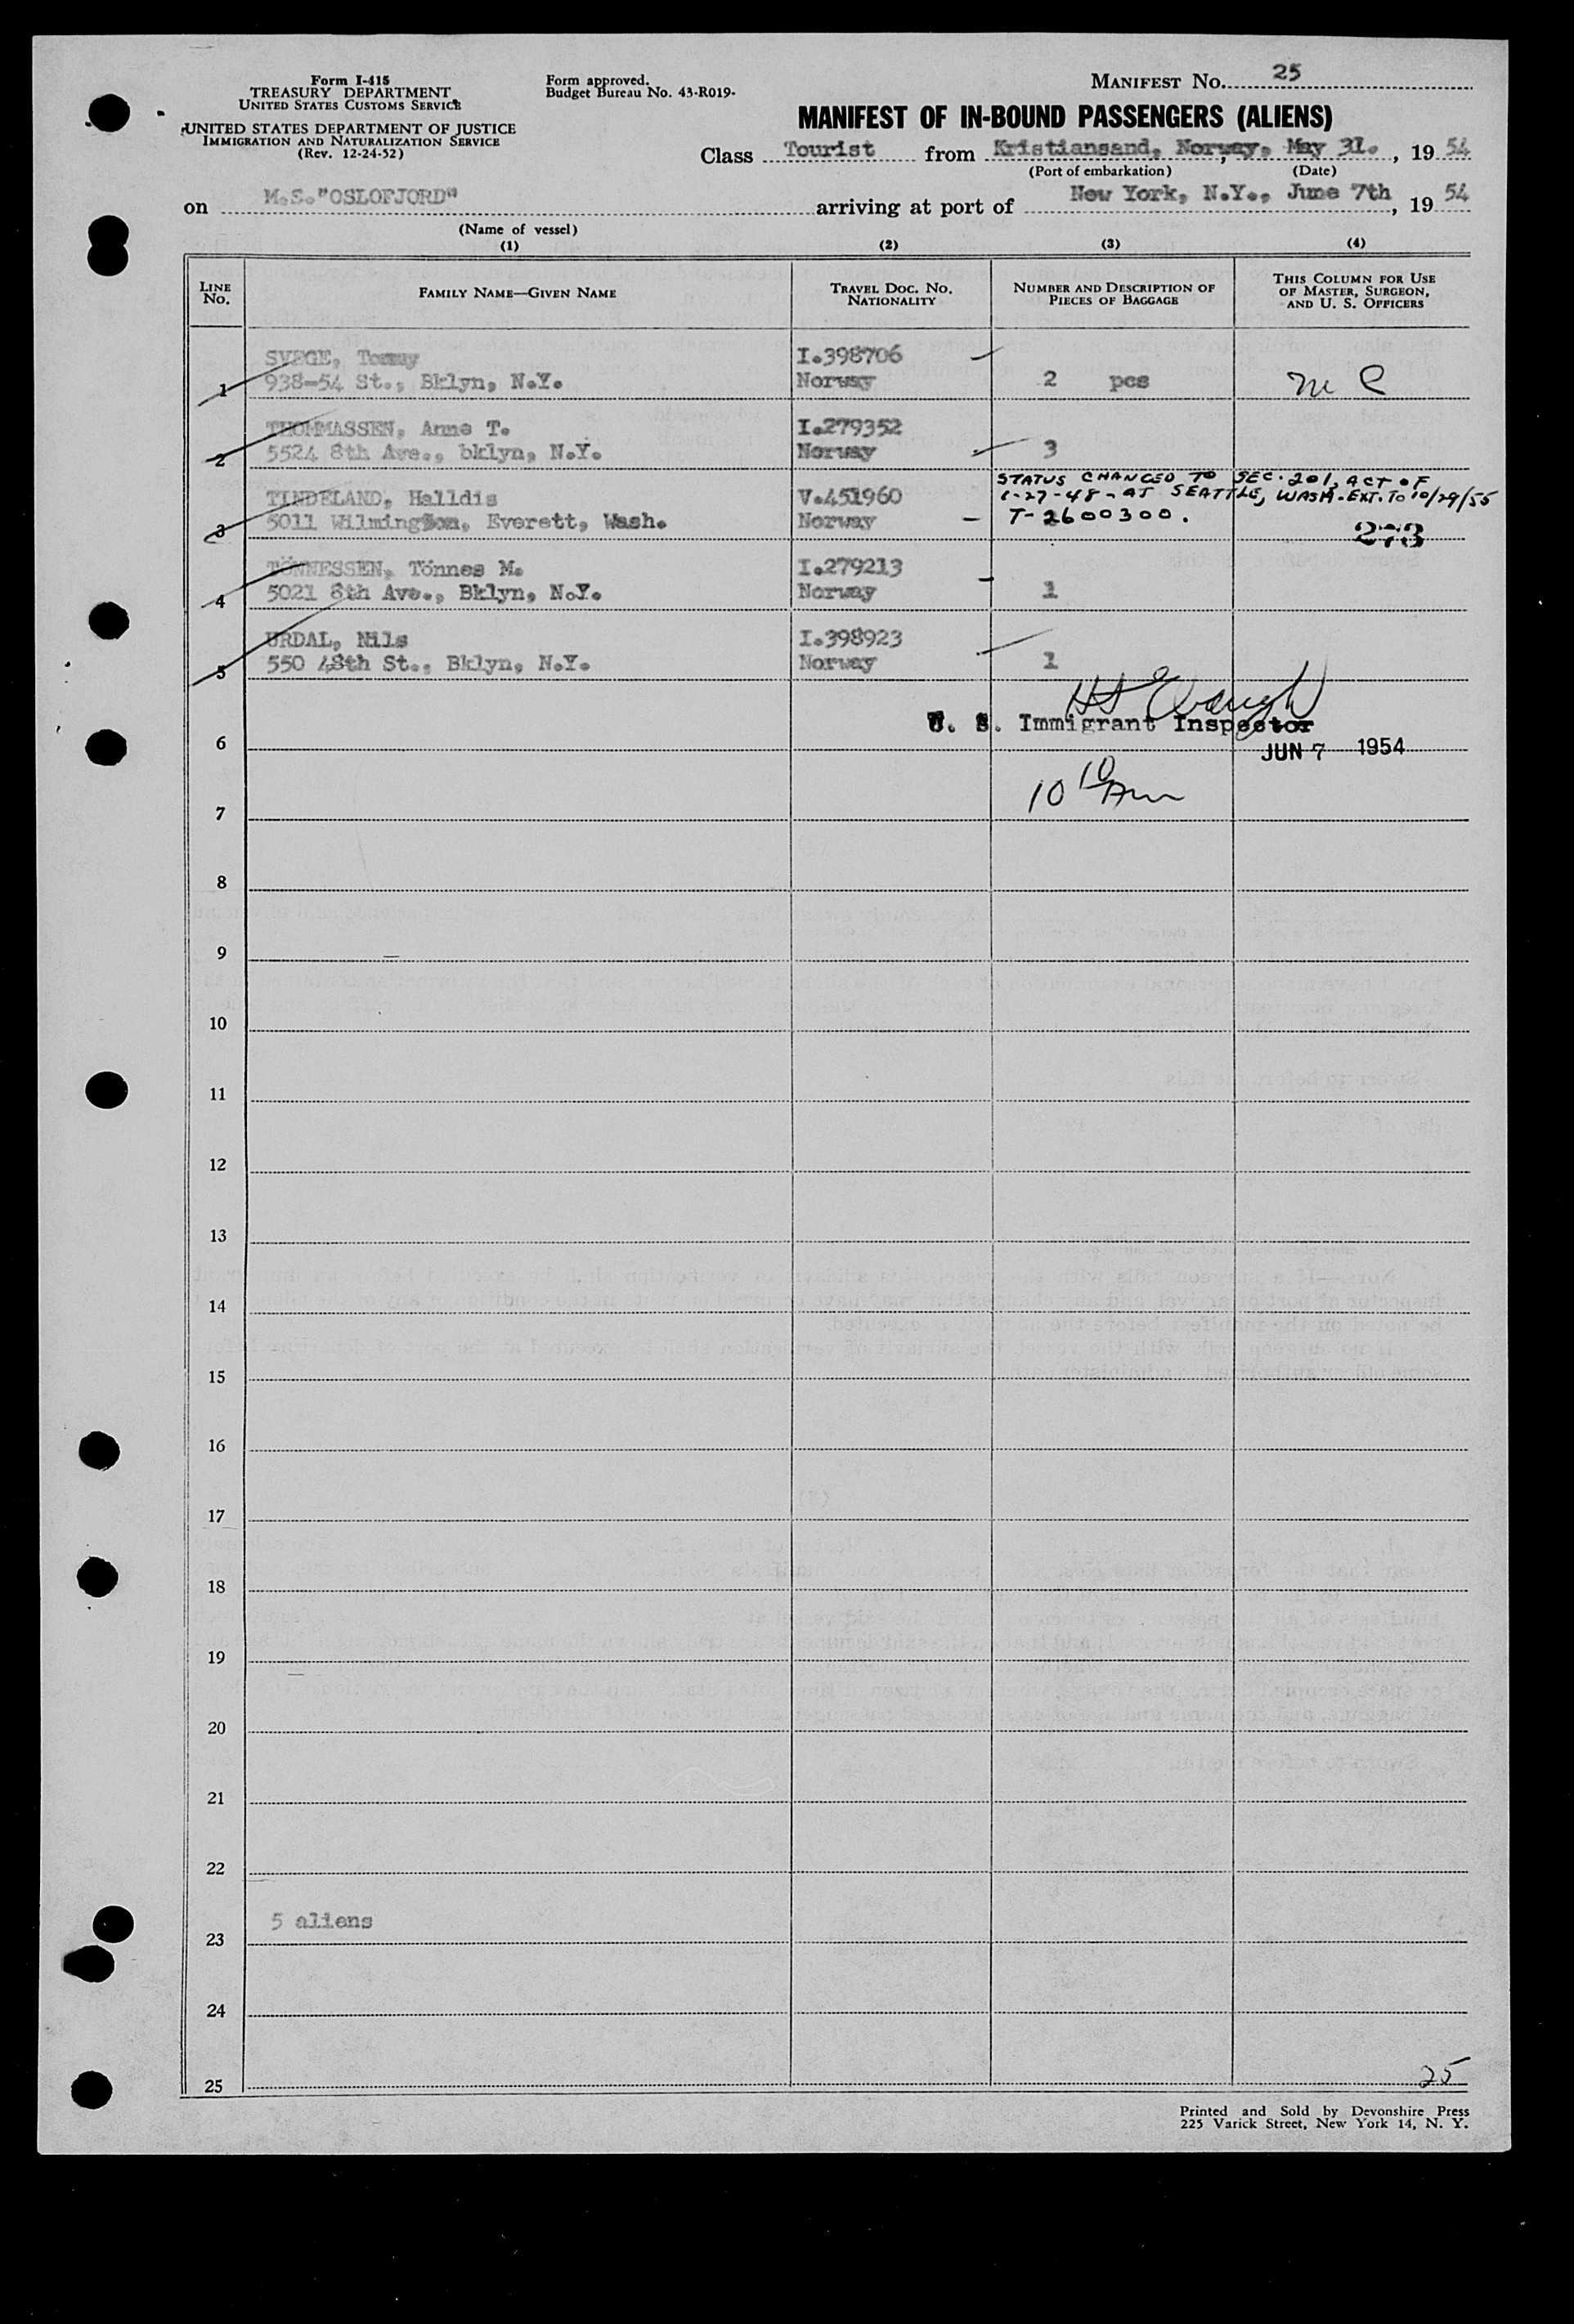 Form I-415
TREASURY DEPARTMENT
UNITED STATES CUSTOMS SERVICE
UNITED STATES DEPARTMENT OF JUSTICE
IMMIGRATION AND NATURALIZATION SERVICE
(Rev. 12-24-52)
Form approved.
Budget Bureau No. 43-R019-
MANIFEST NO. 25
MANIFEST OF IN-BOUND PASSENGERS (ALIENS)
Class Tourist from Kristiansand, Norway, May 31. , 19 54
(Port of embarkation) (Date)
on M.S."OSLOFJORD" arriving at port of New York, N.Y., June 7th , 19 54
(Name of vessel)
(1) (2) (3) (4)
LINE NO. FAMILY NAME—GIVEN NAME TRAVEL DOC. NO. NATIONALITY NUMBER AND DESCRIPTION OF PIECES OF BAGGAGE THIS COLUMN FOR USE OF MASTER, SURGEON, AND U. S. OFFICERS
SVEGE, Tommy I.398706
1 938-54 St., Bklyn, N.Y. Norway 2 pcs
THOMMASSEN, Anne T. I.279352
2 5524 8th Ave., bklyn, N.Y. Norway 3
STATUS CHANGED TO SEC. 201, ACT OF
TINDELAND, Halldis V.451960 1-27-48 - AT SEATTLE, WASH. EXT. TO 10/29/55
3 5011 Wilmington, Everett, Wash. Norway T-2600300.
273
TÖNNESSEN, Tönnes M. I.279213
4 5021 8th Ave., Bklyn, N.Y. Norway 1
URDAL, Nils I.398923
5 550 48th St., Bklyn, N.Y. Norway 1
U. S. Immigrant Inspector
6 JUN 7 1954
10 10 Am
7
8
9
10
11
12
13
14
15
16
17
18
19
20
21
22
5 aliens
23
24
25
25
Printed and Sold by Devonshire Press
225 Varick Street, New York 14, N. Y.